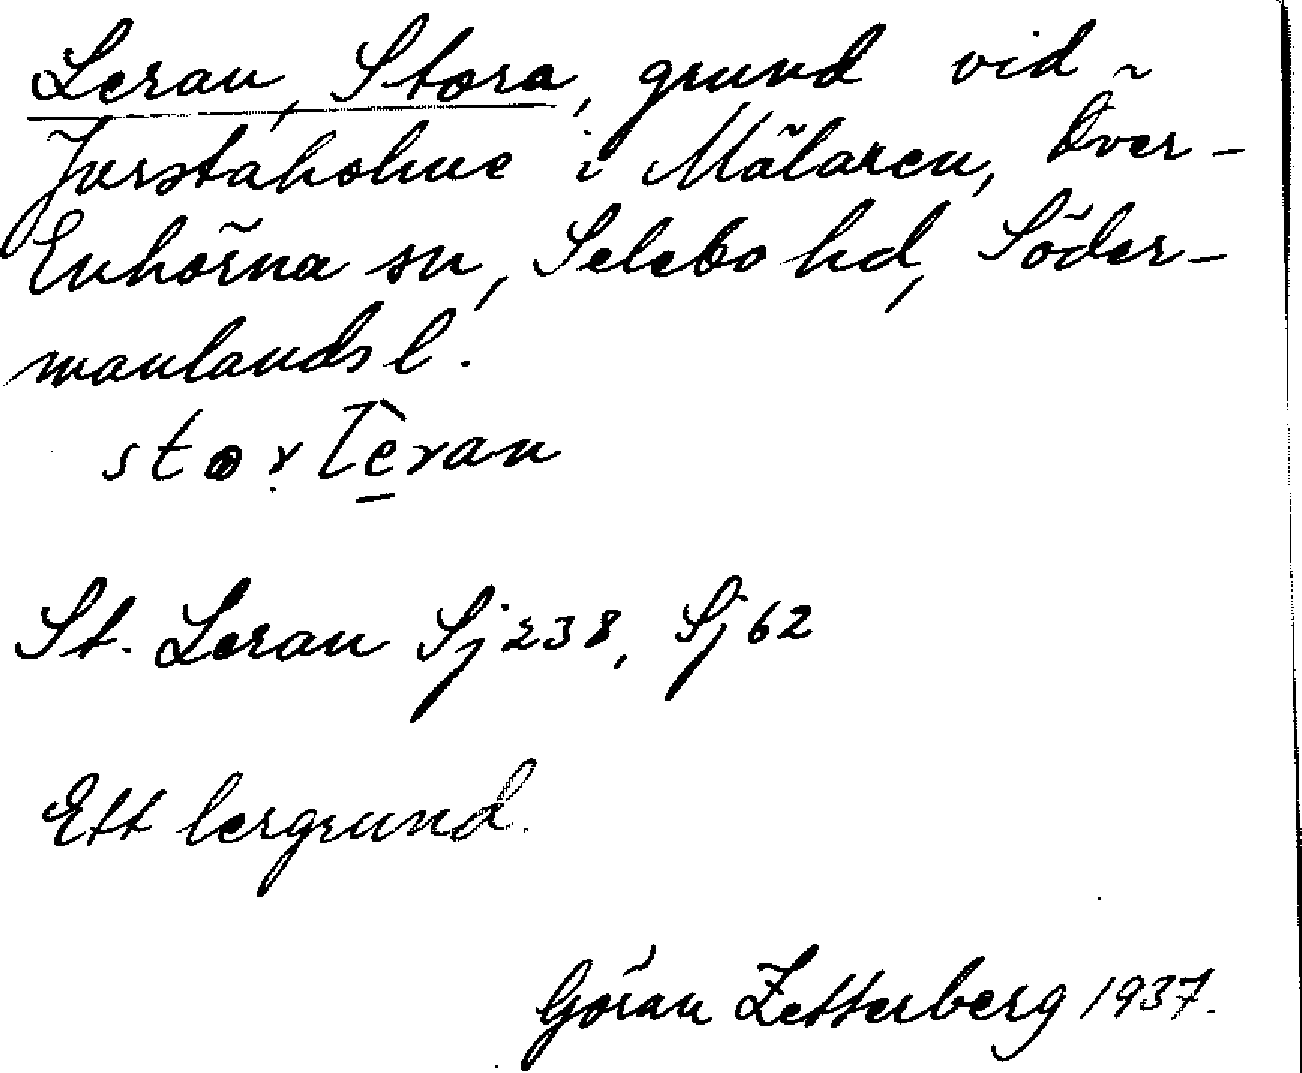 Leran, Stora, grund vid
Jurstaholme i Mälaren, Över-
Enhörna sn, Selebo hd, Söder-
manlands l.
St. Leran Sj 238, Sj 62
Ett lergrund.
Göran Zetterberg 1937.